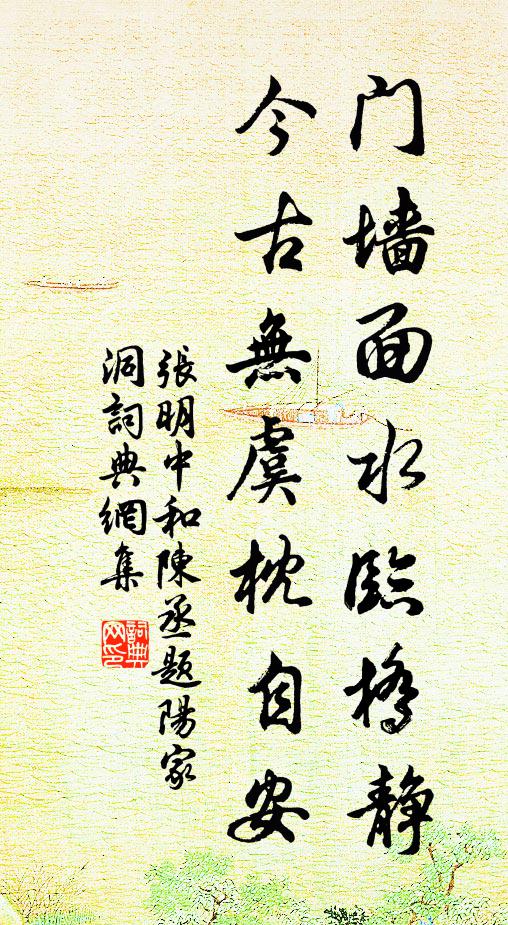 门墙面水临桥静
今古無虞枕自安
張明中和陳丞題陽家
洞詞典網集
詞典網印